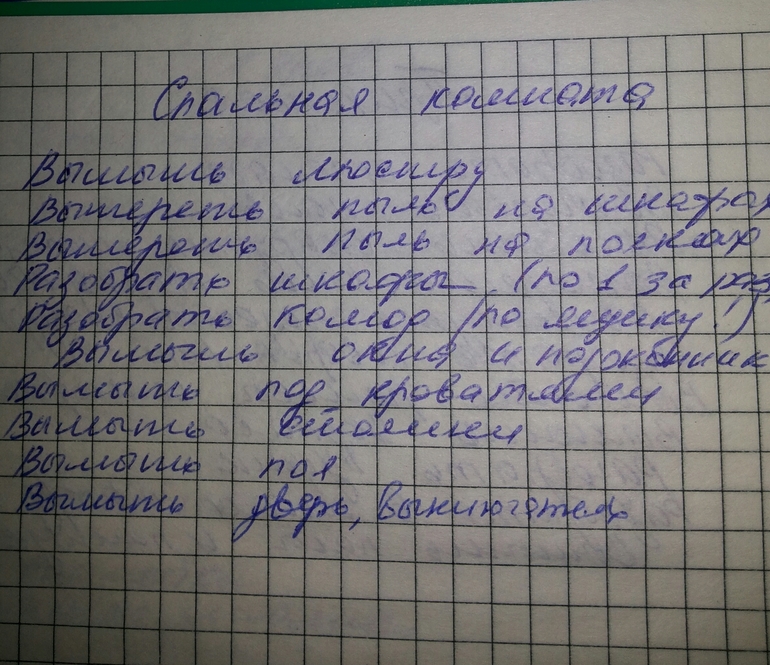 Спальная комната
Вымыть люстру
Вытереть пыль на шкафах
Вытереть пыль на полках
Разобрать шкафы (по 1 за раз
Разобрать комод (по ящику!)
Вымыть окна и подоконник
Вымыть под кроватями
Вымыть столики
Вымыть пол
Вымыть дверь, выключатель